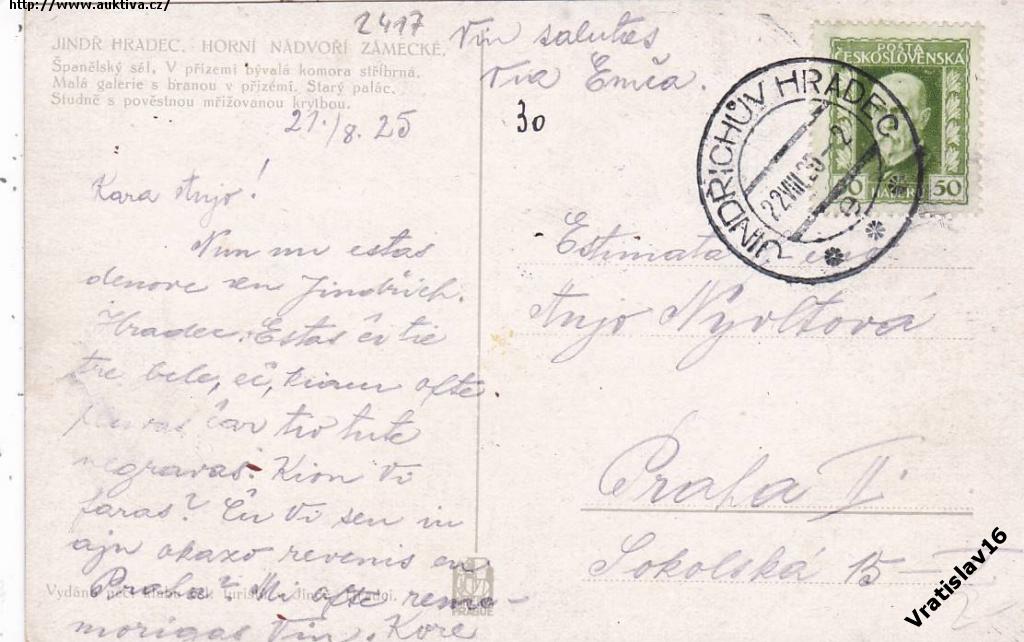 http://www.auktiva.cz/
2417
JINDŘ HRADEC. HORNÍ NÁDVOŘÍ ZÁMECKÉ.
Španělský sál, V přízemí bývalá komora stříbrná.
Malá galerie s branou v přízemí. Starý palác.
Studně s pověstnou mřížovanou krytbou.
21./8. 25
Kara Anjo!
Nun mi estas
denove en Jindřich.
Hradec. Estas ĉi tie
tre bele, eĉ, kiam ofte
ĉar tio tute
negravas. Kion Vi
faras? Ĉu Vi sen
okazo revenis en
Praha? Mi ofte rememorigas
Vin. Kore
Vin salutas
Via Emča.
30
POŠTA
ČESKOSLOVENSKÁ
50 HALÉŘŮ 50
JINDŘICHŮV HRADEC
22.VIII.25
Estimata
Anjo Nývltová
Praha II
Sokolská 15
Vydáno péčí klubu
PRAGUE
Vratislav16